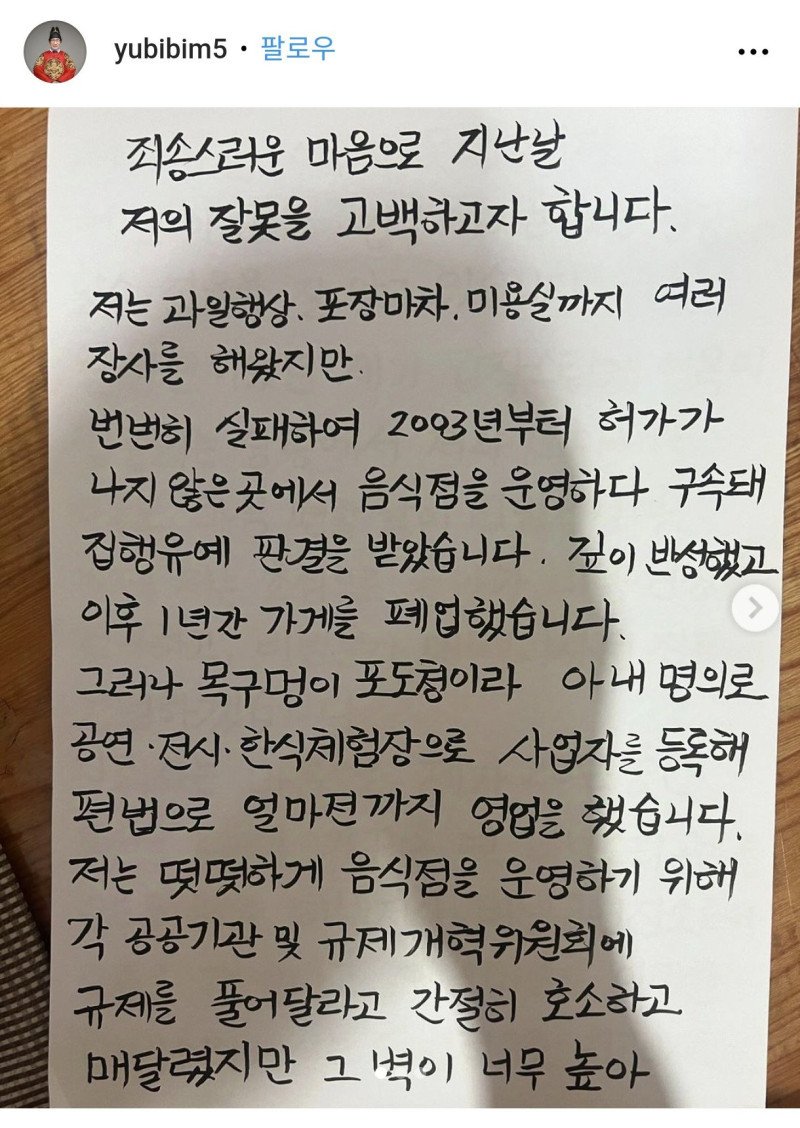 yubibim5 • 팔로우
죄송스러운 마음으로 지난날
저의 잘못을 고백하고자 합니다.
저는 과일행상, 포장마차, 미용실까지 여러
장사를 해왔지만,
번번히 실패하여 2003년부터 허가가
나지 않은 곳에서 음식점을 운영하다 구속돼
집행유예 판결을 받았습니다. 깊이 반성했고
이후 1년간 가게를 폐업했습니다.
그러나 목구멍이 포도청이라 아내 명의로
공연·전시·한식체험장으로 사업자를 등록해
편법으로 얼마전까지 영업을 했습니다.
저는 떳떳하게 음식점을 운영하기 위해
각 공공기관 및 규제개혁위원회에
규제를 풀어달라고 간절히 호소하고
매달렸지만 그 벽이 너무 높아